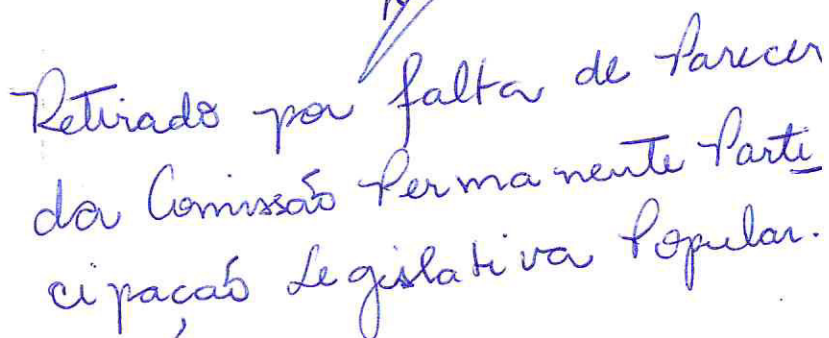 Retirado por falta de Parecer
da Comissão Permanente Parti
cipação Legislativa Popular.